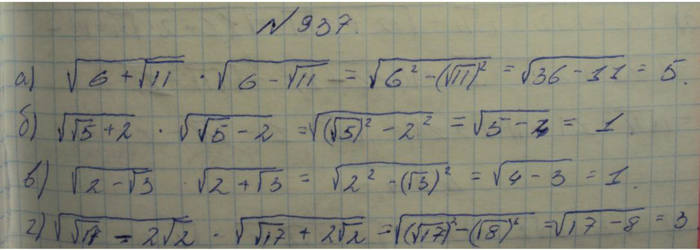 №937.
а) √(6 + √11) · √(6 - √11) = √(6² - (√11)²) = √(36 - 11) = 5.
б) √(√5 + 2) · √(√5 - 2) = √((√5)² - 2²) = √(5 - 4) = 1.
в) √(2 - √3) · √(2 + √3) = √(2² - (√3)²) = √(4 - 3) = 1.
г) √(√17 - 2√2) · √(√17 + 2√2) = √((√17)² - (√8)²) = √(17 - 8) = 3